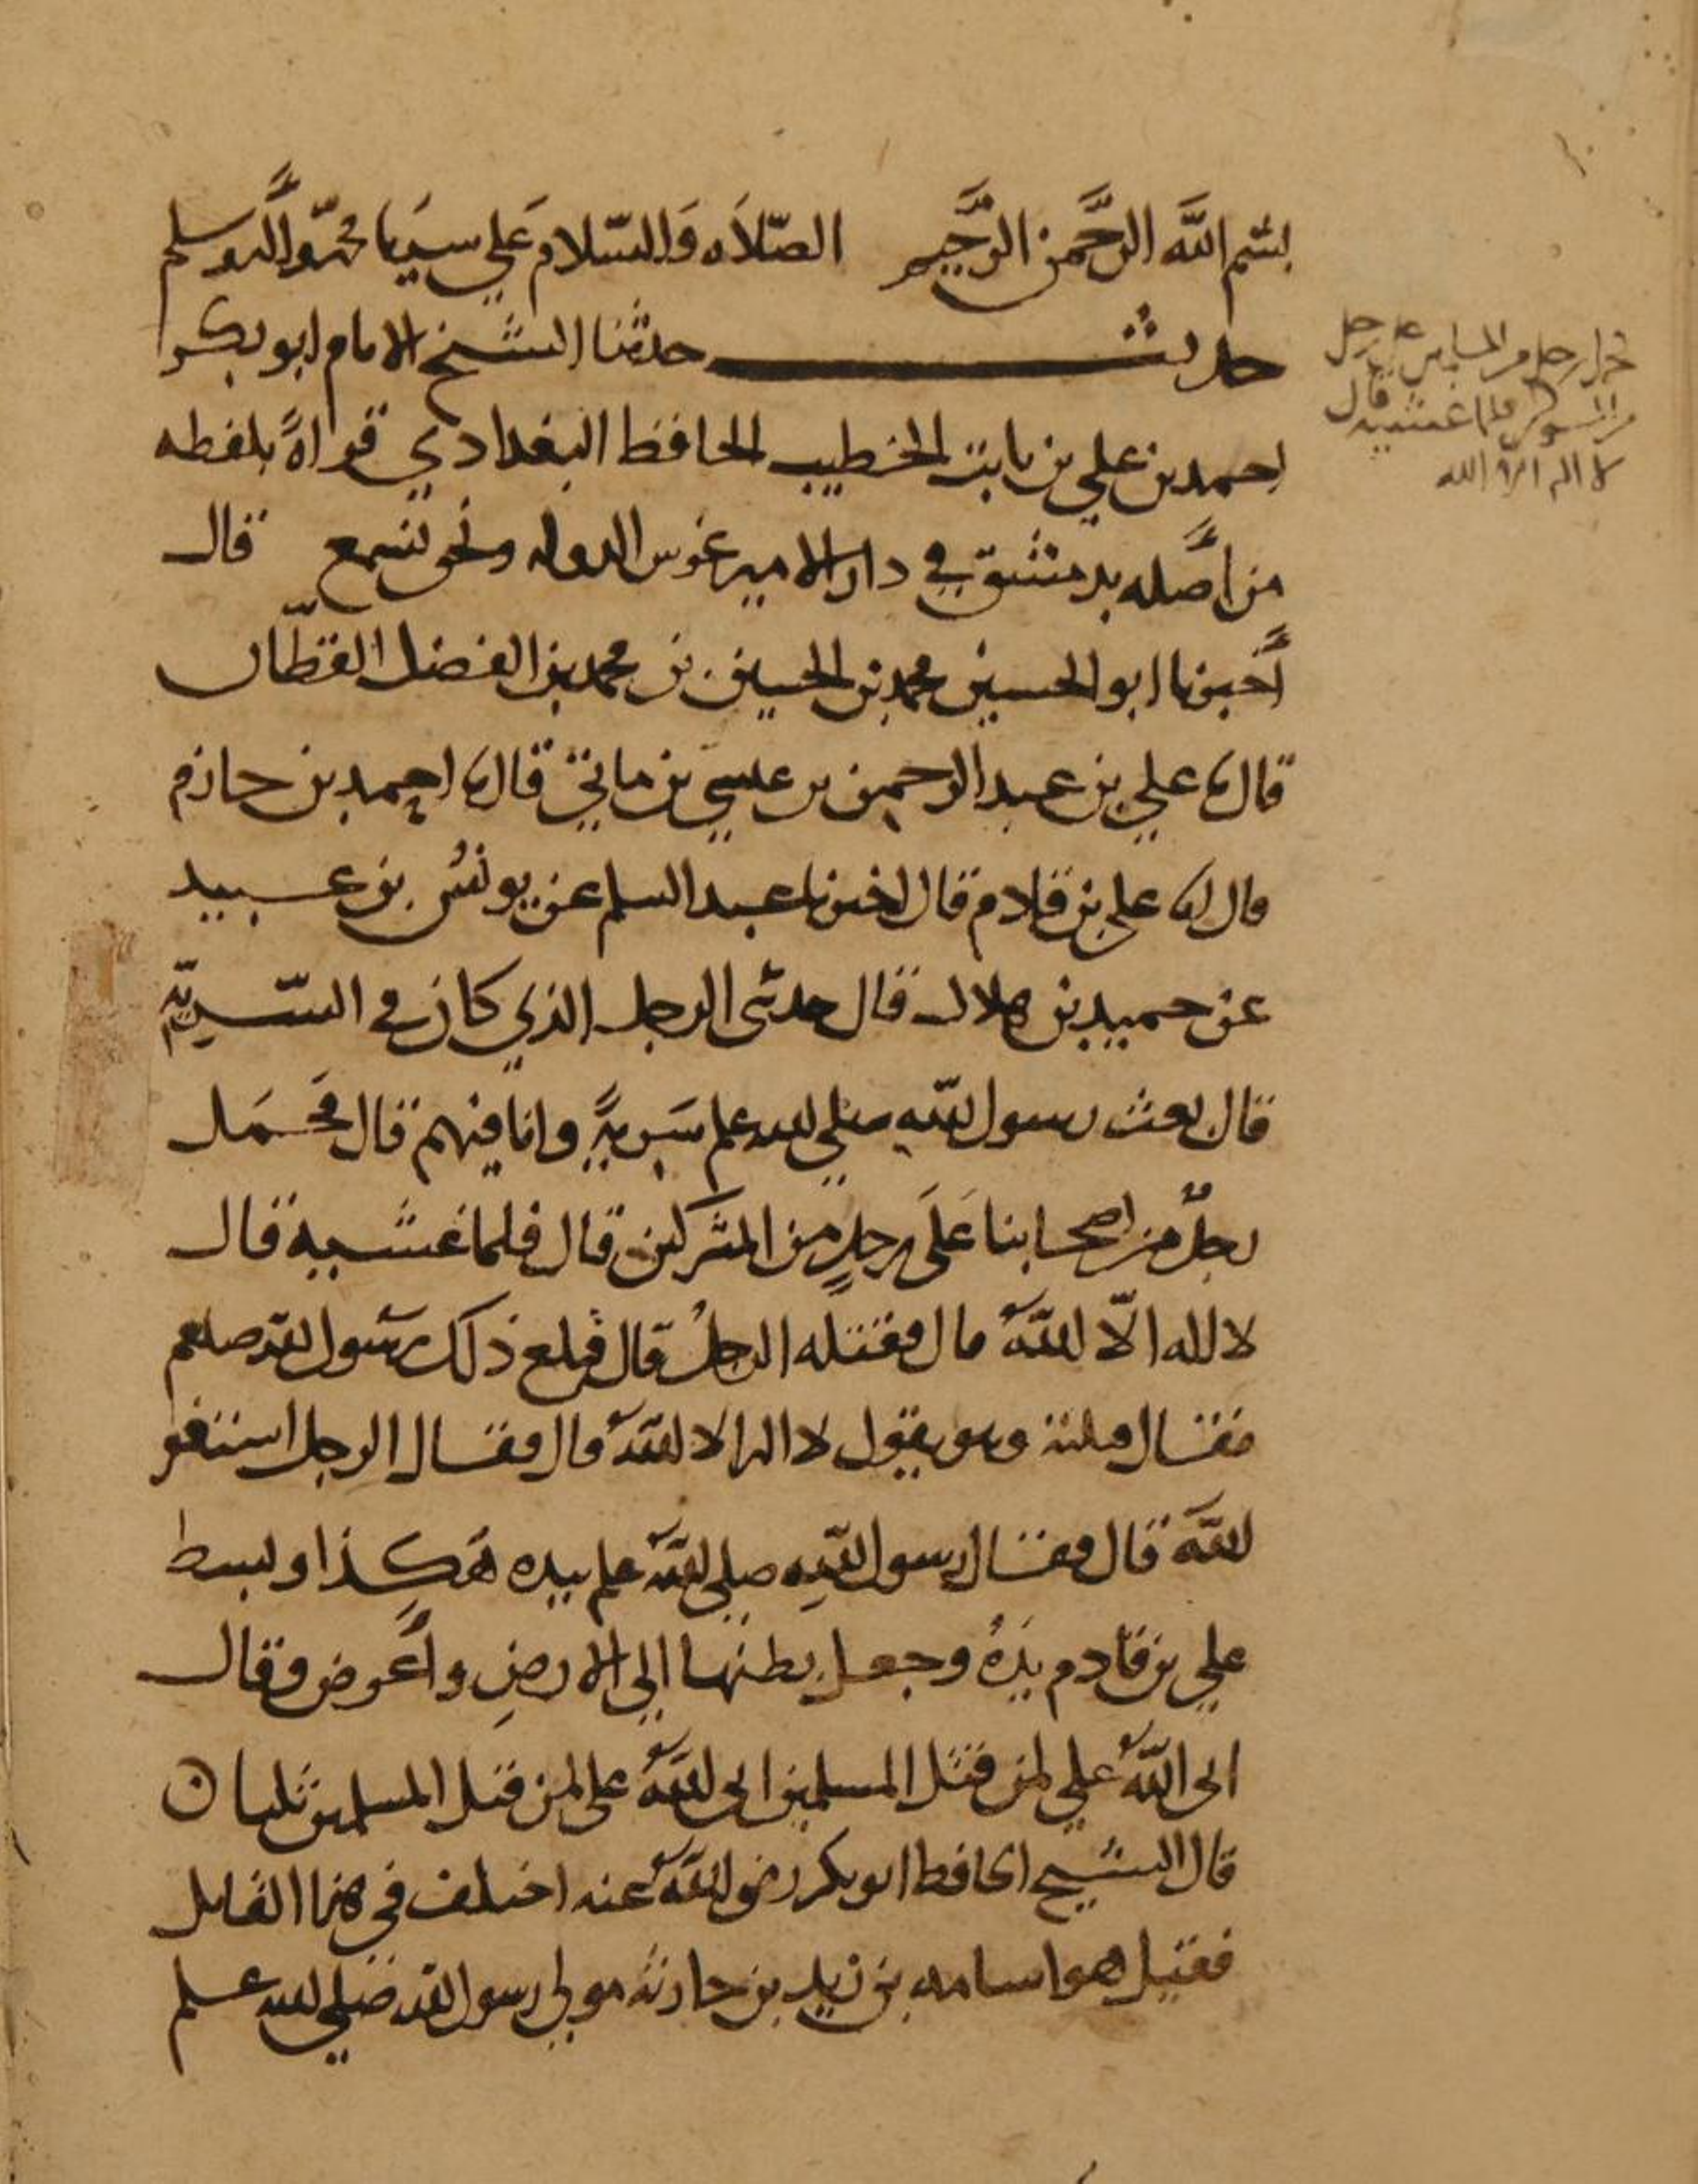 بسم الله الرحمن الرحيم الصلاه والسلام علي سيدنا محمد واله وسلم
حديث حدثنا الشيخ الامام ابو بكر
احمد بن علي بن ثابت الخطيب الحافظ البغدادي قراةً بلفظه
من اصله بدمشق في دار الامير غوس الدوله ونحن نسمع قال
أخبرنا ابو الحسين محمد بن الحسين بن محمد بن الفضل القطان
قال نا علي بن عبد الرحمن بن عيسي بن ماتي قال نا احمد بن حازم
قال انا علي بن قادم قال اخبرنا عبد السلم عن يونس بن عبيد
عن حميد بن هلال قال حدثني الرجل الذي كان في السّريّه
قال بعث رسول الله صلي الله علم سَريةً وانا فيهم قال فحَمَل
رجلٌ من اصحابنا عَلَى رجلٍ من المشركين قال فلما غشيه قال
لا اله الّا اللهُ قال فقتله الرجلُ قال فبلغ ذلك رسول الله صلعم
فقال قتلته وهو يقول لا اله الا اللهُ قال فقال الرجل استغفر
اللهَ قال فقال رسول اللهِ صلي اللهُ علم بيده هكذا وبسط
علي بن قادم يدَهُ وجعل بطنها الي الارضِ وأعرض وقال
ابى اللهُ علي لمن قتل المسلمين ابى اللهُ على لمن قتل المسلمين ثلثا ن
قال الشيخ الحافظ ابو بكر رضي اللهُ عنه اختلف في هذا القاتل
فقيل هو اسامه بن زيد بن حارثه مولي رسول الله صلي الله علم
حمل رجل من المسلمين على رجل
من المشركين فلما غشيه قال
لا اله الا الله